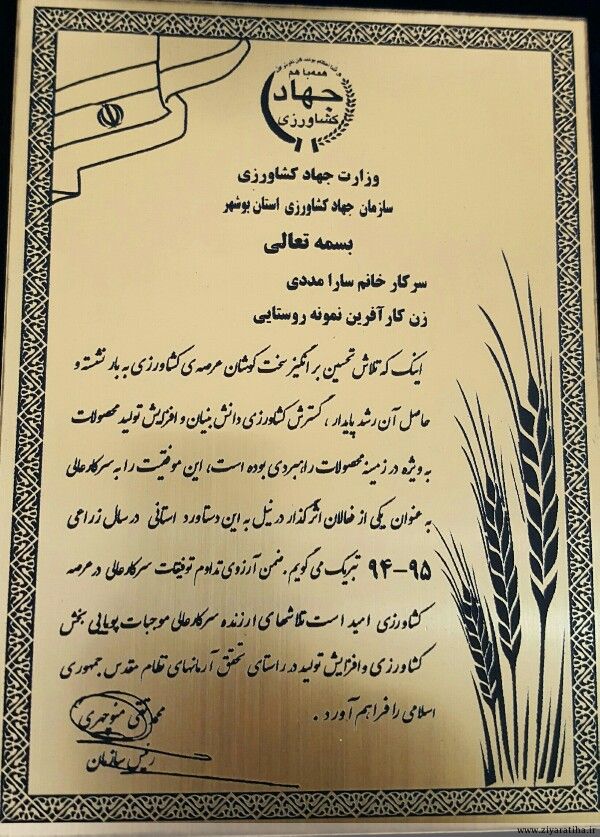 همه با هم
جهاد
کشاورزی
وزارت جهاد کشاورزی
سازمان جهاد کشاورزی استان بوشهر
بسمه تعالی
سرکار خانم سارا مددی
زن کارآفرین نمونه روستایی
اینک که تلاش تحسین برانگیز سخت کوشان عرصه ی کشاورزی به بار نشسته و
حاصل آن رشد پایدار ، گسترش کشاورزی دانش بنیان و افزایش تولید محصولات
به ویژه در زمینه محصولات راهبردی بوده است، این موفقیت را به سرکار عالی
به عنوان یکی از فعالان اثرگذار در نیل به این دستاورد استانی در سال زراعی
۹۴-۹۵ تبریک می گویم. ضمن آرزوی تداوم توفیقات سرکار عالی در عرصه
کشاورزی امید است تلاشهای ارزنده سرکار عالی موجبات پویایی بخش
کشاورزی و افزایش تولید در راستای تحقق آرمانهای نظام مقدس جمهوری
اسلامی را فراهم آورد .
منوچهری
رئیس سازمان
www.ziyaratiha.ir